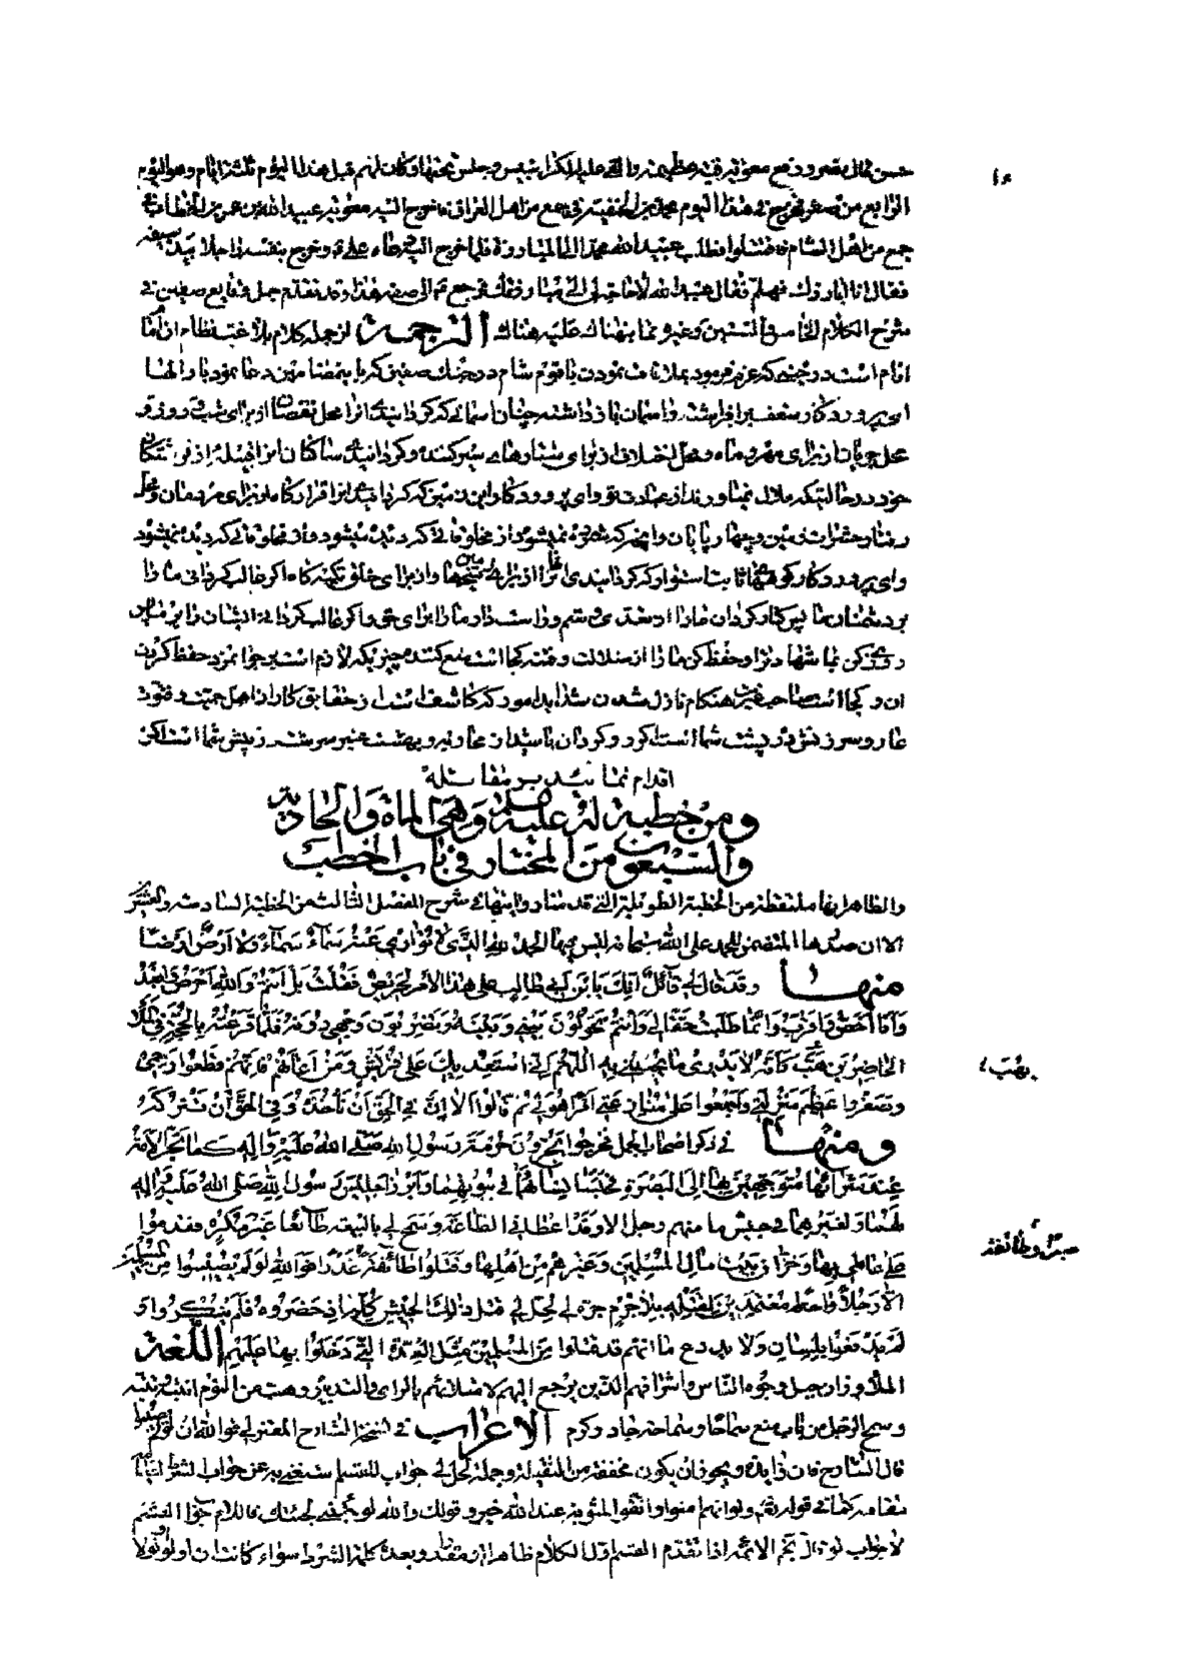 الرابع من صفر فخرج في هذا اليوم محمد بن الحنفية في جمع من اهل العراق فاخرج اليه معوية عبيد الله بن عمر بن الخطاب في
جمع من اهل الشام فاقتتلوا فطلب عبيد الله محمدا الى المبارزة فلما خرج اليه دعاه على ع وخرج بنفسه راجلا بيده سيفه
فقال انا ابارزك فهلم فقال عبيد الله لا حاجة لى الى مبارزتك فرجع الى صفه هذا وقد تقدم جمل وقايع صفين في
شرح الكلام الخامس والستين وغيره مما نبهناك عليه هناك الترجمة از جمله كلام بلاغت نظام آن امام
انام است در حينى كه عزم فرمود بملاقات نمودن با قوم شام در جنك صفين كه باين مضامين دعا نمود بار الها
اى پروردكار سقف برافراشته واسمان باز داشته چنان اسمانى كه كردانيدى انرا محل نقصان از براى شب و روز و
محل جريان از براى مهر وماه ومحل اختلاف از براى ستارهاى سير كننده وكردانيدى ساكنان انرا قبيله از فرشتكان
خود در حالتيكه ملال نمياورند از عبادت تو واى پروردكار اين زمين كه كردانيدى انرا قراركاه از براى مردمان ومحل
رفتار حشرات زمين وچهار پايان وانچه كه شمرده نميشود از مخلوقاتى كه ديده ميشود واز مخلوقاتى كه ديده نميشود
واى پروردكار كوههاى ثابت استوار كه كردانيدى انها را از براى زمين ميخها واز براى خلق تكيه كاه اكر غالب كردانى ما را
بر دشمنان ما پس كنار كردان ما را از تعدى وستم وراست دار ما را براى حق واكر غالب كردانى ايشان را بر ما پس
روزى كن بما شهادت را وحفظ كن ما را از ضلالت وفتنه كجا است منع كننده چيزيكه لازم است بر جوانمرد حفظ كردن
ان وكجا است صاحب غيرت هنكام نازل شدن شدايد امور كه كاشف است از حقايق كار از اهل حميت وفتوت
عار وسرزنش در پشت شما است اكر رو كردان باشيد از محاربه وبهشت عنبر سرشت در پيش شما است اكر
اقدام نمائيد بر مقاتله
ومن خطبة له عليه السلام وهى الماة والحادية
والسبعون من المختار في باب الخطب
والظاهر انها ملتقطة من الخطبة الطويلة التى قدمنا روايتها في شرح الفصل الثالث من الخطبة السادسة والعشرين
الا ان صدرها المتضمن للحمد على الله سبحانه ليس فيها الحمد لله الذى لا توارى عنه سماء سماء ولا ارض ارضا
منها وقد قال لى قائل انك يا ابن ابى طالب على هذا الامر لحريص فقلت بل انتم والله احرص وابعد
وانا اخص واقرب وانما طلبت حقا لى وانتم تحولون بينى وبينه وتضربون وجهى دونه فلما قرعته بالحجة في الملاء
الحاضرين هب كانه لا يدرى ما يجيبنى به اللهم انى استعديك على قريش ومن اعانهم فانهم قطعوا رحمى
وصغروا عظيم منزلتى واجمعوا على منازعتى امرا هو لى ثم قالوا الا ان في الحق ان تأخذه وفي الحق ان تتركه
ومنها في ذكر اصحاب الجمل فخرجوا يجرون حرمة رسول الله صلى الله عليه واله كما تجر الامة
عند شرائها متوجهين بها الى البصرة فحبسا نساءهما في بيوتهما وابرزا حبيس رسول الله صلى الله عليه واله
لهما ولغيرهما في جيش ما منهم رجل الا وقد اعطانى الطاعة وسمح لى بالبيعة طائعا غير مكره فقدموا
على عاملى بها وخزان بيت مال المسلمين وغيرهم من اهلها فقتلوا طائفة غدرا فوالله لو لم يصيبوا من المسلمين
الا رجلا واحدا معتمدين لقتله بلا جرم جره لحل لى قتل ذلك الجيش كله اذ حضروه فلم ينكروا و
لم يدفعوا بلسان ولا يد دع ما انهم قد قتلوا من المسلمين مثل العدة التى دخلوا بها عليهم اللغة
الملاء وزان جبل وجوه الناس واشرافهم الذين يرجع اليهم لامتلائهم بالراى والتدبير وهب من النوم انتبه
وسمح الرجل من باب منع سماحا وسماحة جاد وكرم الاعراب في نسخة الشارح المعتزلى فوالله ان لو لم يصيبوا
قال الشارح فان زايدة ويجوز ان يكون مخففة من الثقيلة وجملة لحل لى جواب للقسم استغنى به عن جواب الشرط لقيامه
مقامه كما في قوله تعالى ولو انهم امنوا واتقوا لمثوبة عند الله خير وقولك والله لو جئتنى لجئتك فاللام جواب القسم
لا جواب لو قال نجم الائمة اذا تقدم القسم اول الكلام ظاهرا او مقدرا وبعده كلمة الشرط سواء كانت ان او لو ولولا
بهت